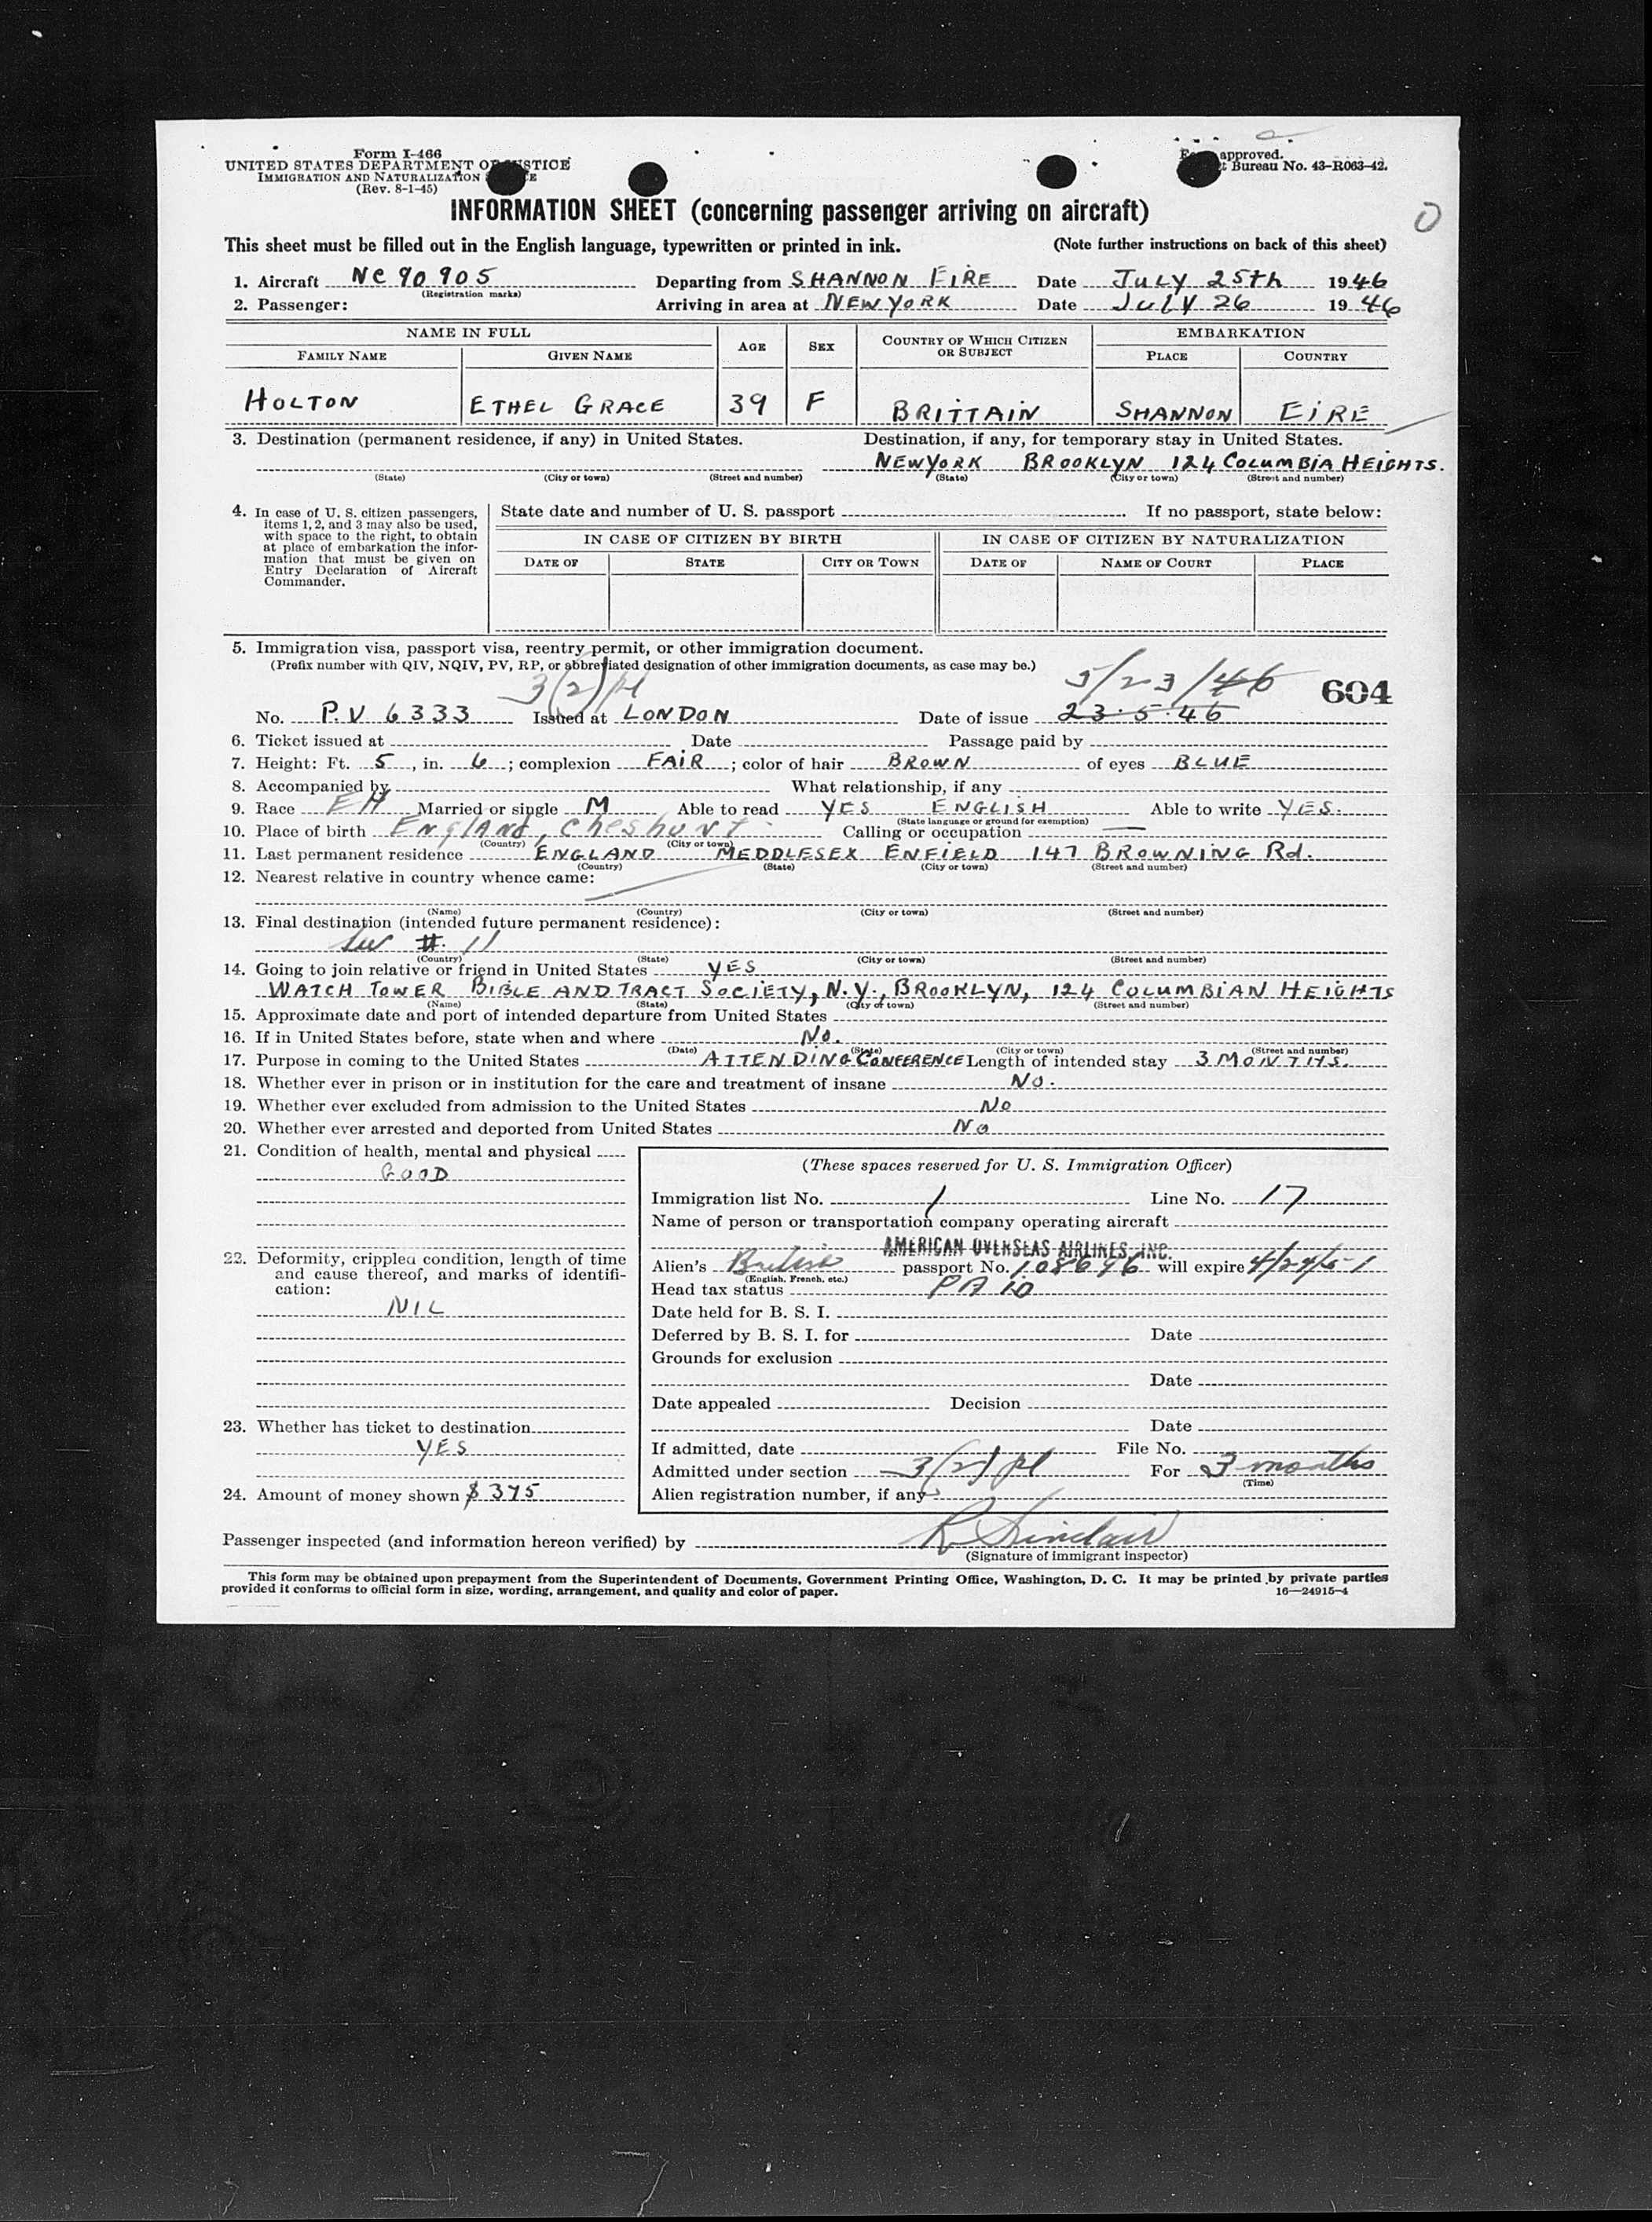 Form I-466
UNITED STATES DEPARTMENT OF JUSTICE
IMMIGRATION AND NATURALIZATION
(Rev. 8-1-45)
approved.
Bureau No. 43-R063-42.
INFORMATION SHEET (concerning passenger arriving on aircraft)
0
This sheet must be filled out in the English language, typewritten or printed in ink. (Note further instructions on back of this sheet)
1. Aircraft NC 90905 Departing from SHANNON EIRE Date JULY 25th 1946
(Registration marks)
2. Passenger: Arriving in area at NEW YORK Date JULY 26 1946
NAME IN FULL AGE SEX COUNTRY OF WHICH CITIZEN OR SUBJECT EMBARKATION
FAMILY NAME GIVEN NAME PLACE COUNTRY
HOLTON ETHEL GRACE 39 F BRITTAIN SHANNON EIRE
3. Destination (permanent residence, if any) in United States. Destination, if any, for temporary stay in United States.
NEW YORK BROOKLYN 124 COLUMBIA HEIGHTS.
(State) (City or town) (Street and number) (State) (City or town) (Street and number)
4. In case of U. S. citizen passengers, items 1, 2, and 3 may also be used, with space to the right, to obtain at place of embarkation the information that must be given on Entry Declaration of Aircraft Commander.
State date and number of U. S. passport If no passport, state below:
IN CASE OF CITIZEN BY BIRTH IN CASE OF CITIZEN BY NATURALIZATION
DATE OF STATE CITY OR TOWN DATE OF NAME OF COURT PLACE
5. Immigration visa, passport visa, reentry permit, or other immigration document.
(Prefix number with QIV, NQIV, PV, RP, or abbreviated designation of other immigration documents, as case may be.)
3(2) 5/23/46 604
No. P.V 6333 Issued at LONDON Date of issue 23.5.46
6. Ticket issued at Date Passage paid by
7. Height: Ft. 5, in. 6; complexion FAIR; color of hair BROWN of eyes BLUE
8. Accompanied by What relationship, if any
9. Race EH Married or single M Able to read YES ENGLISH Able to write YES.
(State language or ground for exemption)
10. Place of birth England, Cheshunt Calling or occupation —
(Country) (City or town)
11. Last permanent residence ENGLAND MEDDLESEX ENFIELD 147 BROWNING Rd.
(Country) (State) (City or town) (Street and number)
12. Nearest relative in country whence came:
(Name) (Country) (City or town) (Street and number)
13. Final destination (intended future permanent residence):
# 11
(Country) (State) (City or town) (Street and number)
14. Going to join relative or friend in United States YES
WATCH TOWER BIBLE AND TRACT SOCIETY, N.Y., BROOKLYN, 124 COLUMBIAN HEIGHTS
(Name) (State) (City or town) (Street and number)
15. Approximate date and port of intended departure from United States
16. If in United States before, state when and where No.
(Date) (State) (City or town) (Street and number)
17. Purpose in coming to the United States ATTENDING CONFERENCE Length of intended stay 3 MONTHS.
18. Whether ever in prison or in institution for the care and treatment of insane No.
19. Whether ever excluded from admission to the United States No
20. Whether ever arrested and deported from United States No
21. Condition of health, mental and physical
GOOD
22. Deformity, crippled condition, length of time and cause thereof, and marks of identification:
NIL
23. Whether has ticket to destination
YES
24. Amount of money shown $ 375
(These spaces reserved for U. S. Immigration Officer)
Immigration list No. 1 Line No. 17
Name of person or transportation company operating aircraft
AMERICAN OVERSEAS AIRLINES, INC.
Alien's British passport No. 108696 will expire
(English, French, etc.)
Head tax status PAID
Date held for B. S. I.
Deferred by B. S. I. for Date
Grounds for exclusion
Date
Date appealed Decision
Date
If admitted, date File No.
Admitted under section 3(2) For 3 months
(Time)
Alien registration number, if any
Passenger inspected (and information hereon verified) by R Sinclair
(Signature of immigrant inspector)
This form may be obtained upon prepayment from the Superintendent of Documents, Government Printing Office, Washington, D. C. It may be printed by private parties
provided it conforms to official form in size, wording, arrangement, and quality and color of paper. 16—24915-4